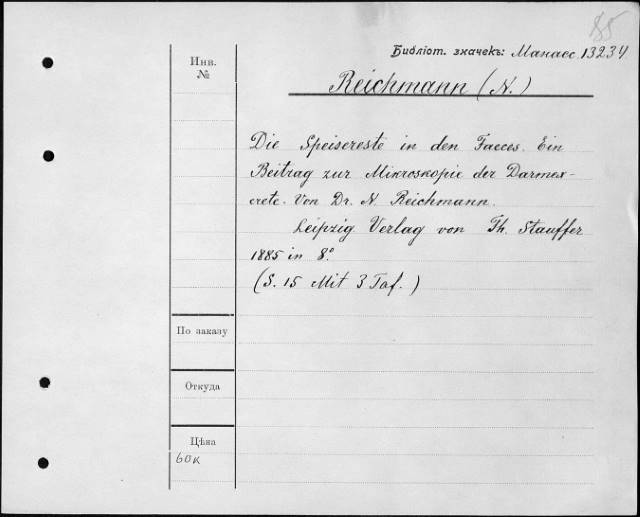 85
Библіот. значекъ: Манасс. 13234
Инв.
№
Reichmann (N.)
Die Speisereste in den Faeces. Ein
Beitrag zur Mikroskopie der Darmex-
crete. Von Dr. N. Reichmann.
Leipzig Verlag von Th. Stauffer
1885 in 8°.
(S. 15 Mit 3 Taf.)
По заказу
Откуда
Цѣна
60к